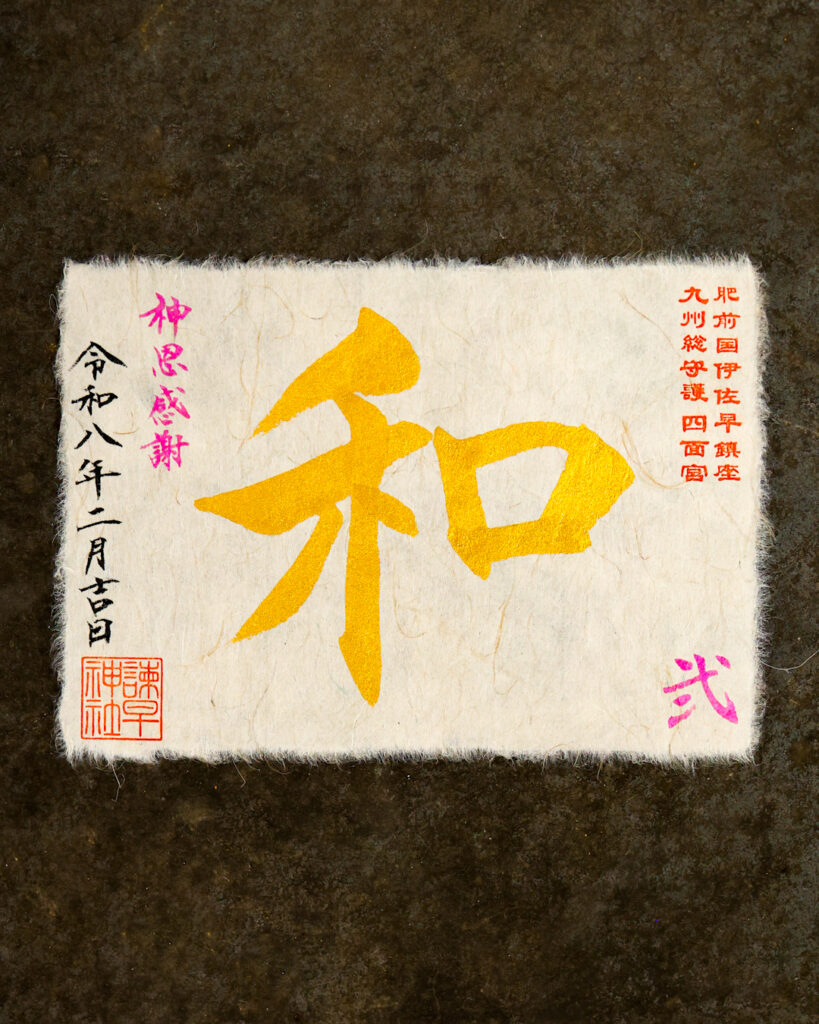 肥前国伊佐早鎮座
九州総守護 四面宮
弐
和
神恩感謝
令和八年二月吉日
諫早
神社